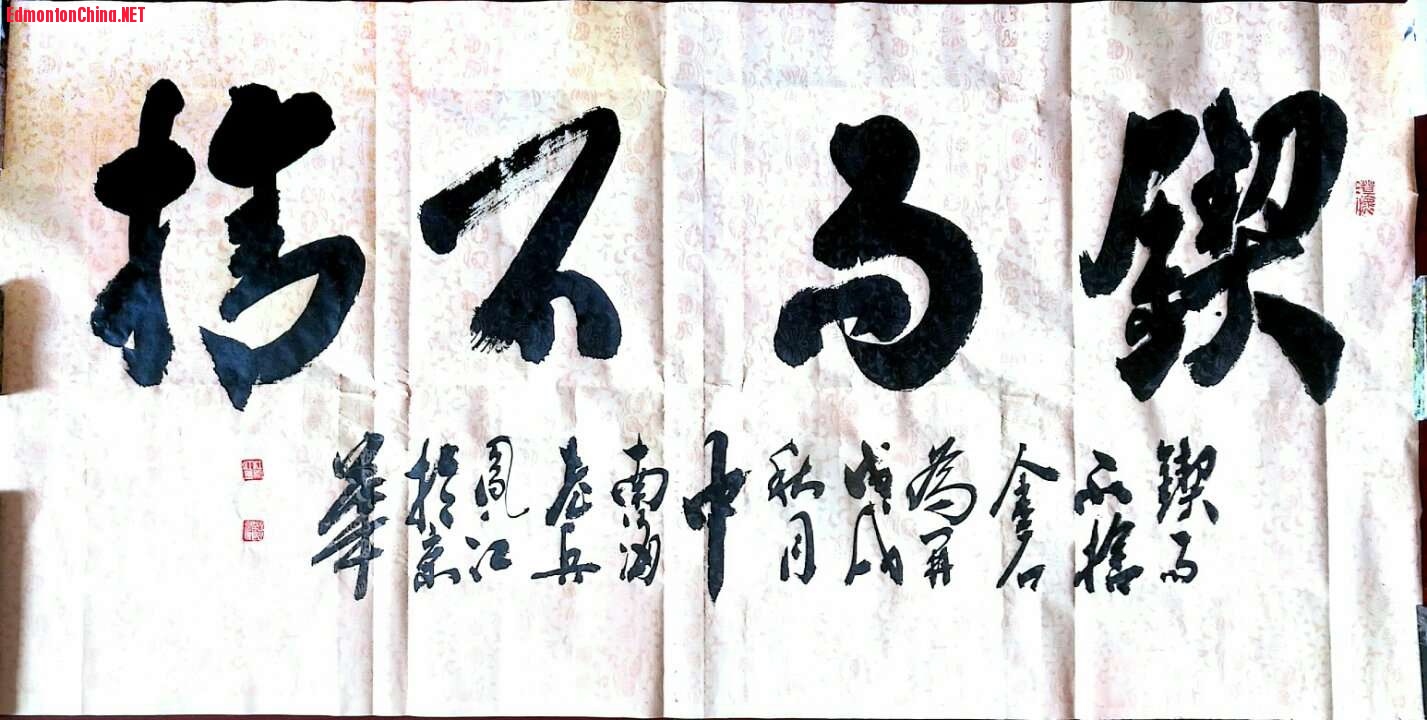 EdmontonChina.NET
鍥而不捨
鍥而
不捨
金石
為開
戊戌
秋月
中
南海
老兵
鳳江
於京
華